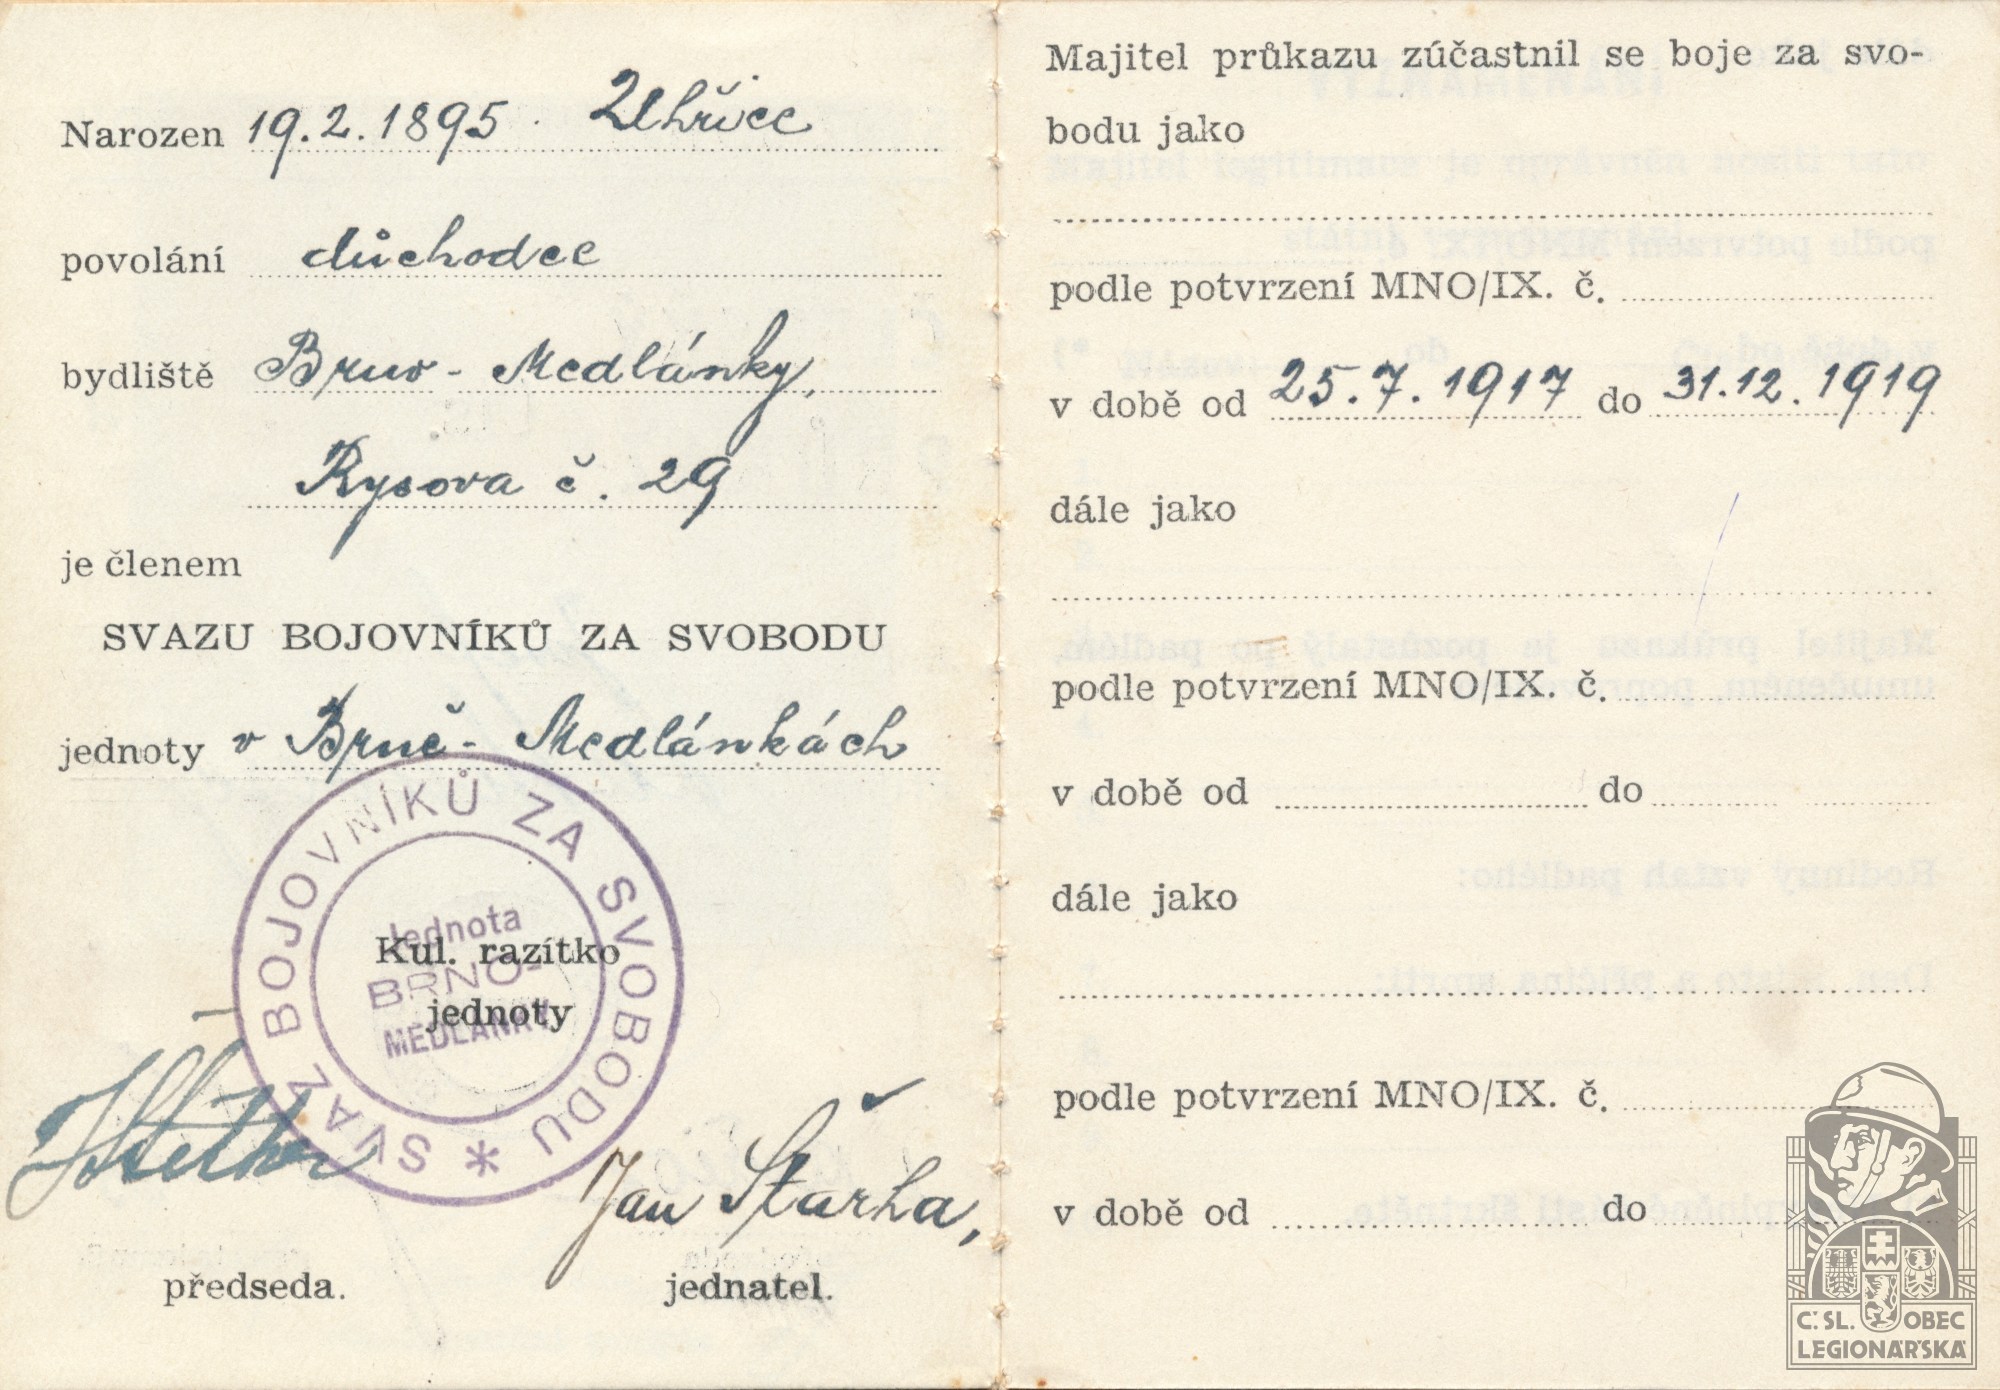 Narozen 19.2.1895. Uhřice
povolání důchodce
bydliště Brno - Medlánky,
Rysova č. 29
je členem
SVAZU BOJOVNÍKŮ ZA SVOBODU
jednoty v Brně - Medlánkách
SVAZ BOJOVNÍKŮ ZA SVOBODU *
Jednota
BRNO-
MEDLÁNKY
Kul. razítko
jednoty
Jan Stařha,
předseda.
jednatel.
Majitel průkazu zúčastnil se boje za svo-
bodu jako
podle potvrzení MNO/IX. č.
v době od 25.7.1917 do 31.12.1919
dále jako
podle potvrzení MNO/IX. č.
v době od do
dále jako
podle potvrzení MNO/IX. č.
v době od do
Č.SL. OBEC
LEGIONÁŘSKÁ